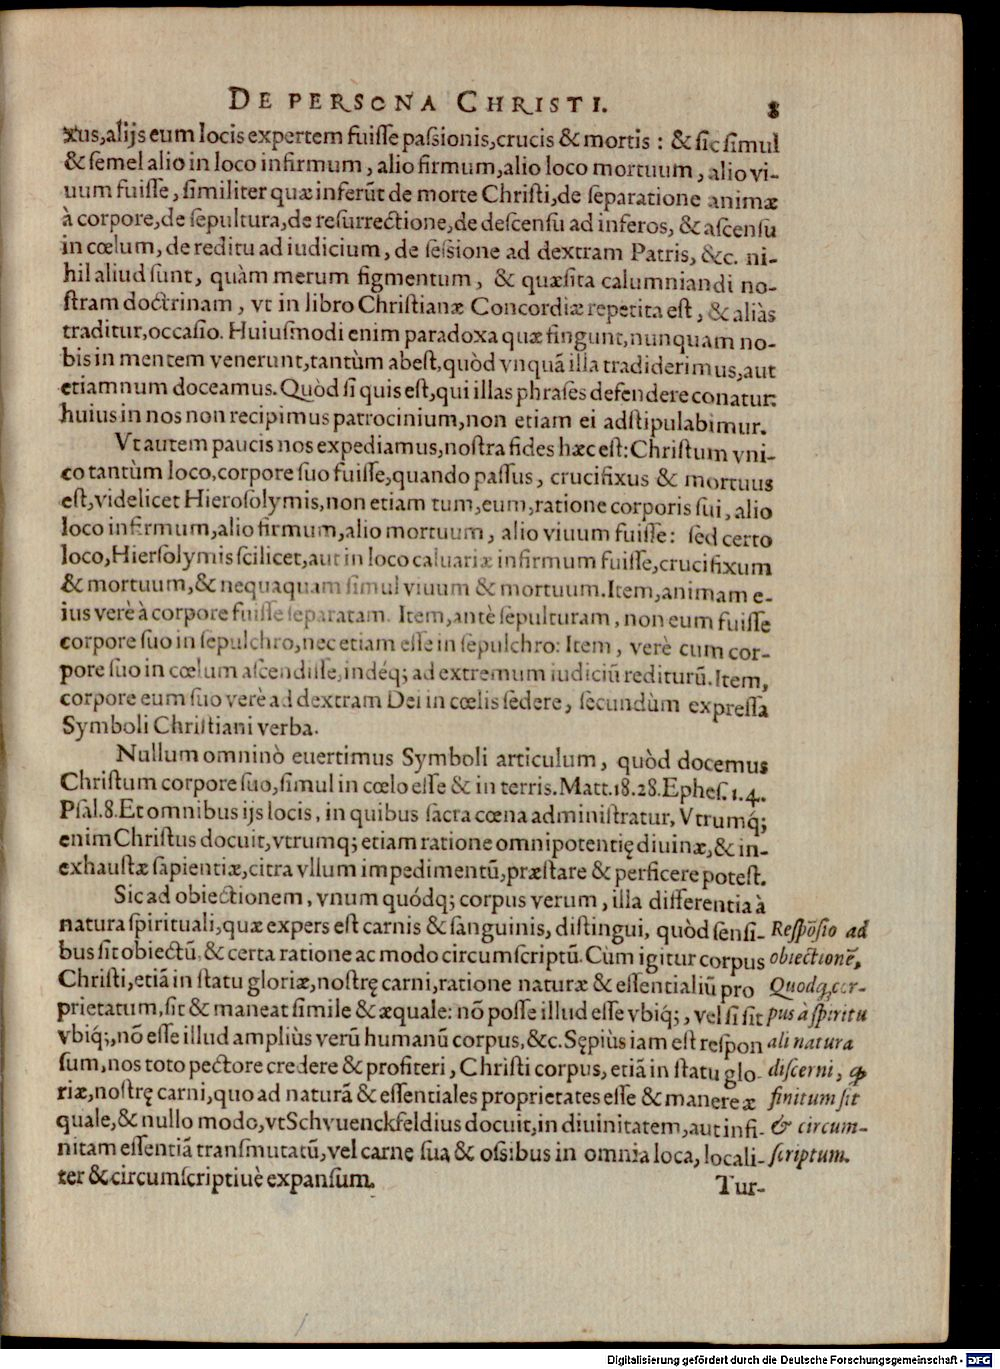 DE PERSONA CHRISTI. 8
xus, alijs eum locis expertem fuiſſe paſsionis, crucis & mortis : & ſic ſimul
& ſemel alio in loco infirmum, alio firmum, alio loco mortuum, alio vi-
uum fuiſſe, ſimiliter quæ inferūt de morte Chriſti, de ſeparatione animæ
à corpore, de ſepultura, de reſurrectione, de deſcenſu ad inferos, & aſcenſu
in cœlum, de reditu ad iudicium, de ſeſsione ad dextram Patris, &c. ni-
hil aliud ſunt, quàm merum figmentum, & quæſita calumniandi no-
ſtram doctrinam, vt in libro Chriſtianæ Concordiæ repetita eſt, & aliàs
traditur, occaſio. Huiuſmodi enim paradoxa quæ fingunt, nunquam no-
bis in mentem venerunt, tantùm abeſt, quòd vnquã illa tradiderimus, aut
etiamnum doceamus. Quòd ſi quis eſt, qui illas phraſes defendere conatur:
huius in nos non recipimus patrocinium, non etiam ei adſtipulabimur.
Vt autem paucis nos expediamus, noſtra fides hæc eſt: Chriſtum vni-
co tantùm loco, corpore ſuo fuiſſe, quando paſſus, crucifixus & mortuus
eſt, videlicet Hieroſolymis, non etiam tum, eum, ratione corporis ſui, alio
loco infirmum, alio firmum, alio mortuum, alio viuum fuiſſe: ſed certo
loco, Hierſolymis ſcilicet, aut in loco caluariæ infirmum fuiſſe, crucifixum
& mortuum, & nequaquam ſimul viuum & mortuum. Item, animam e-
ius verè à corpore fuiſſe ſeparatam. Item, antè ſepulturam, non eum fuiſſe
corpore ſuo in ſepulchro, nec etiam eſſe in ſepulchro: Item, verè cum cor-
pore ſuo in cœlum aſcendiſſe, indéq; ad extremum iudiciū rediturū. Item,
corpore eum ſuo verè ad dextram Dei in cœlis ſedere, ſecundùm expreſſa
Symboli Chriſtiani verba.
Nullum omninò euertimus Symboli articulum, quòd docemus
Chriſtum corpore ſuo, ſimul in cœlo eſſe & in terris. Matt. 18. 28. Epheſ. 1. 4.
Pſal. 8. Et omnibus ijs locis, in quibus ſacra cœna adminiſtratur, Vtrumq́;
enim Chriſtus docuit, vtrumq; etiam ratione omnipotentię diuinæ, & in-
exhauſtæ ſapientiæ, citra vllum impedimentū, præſtare & perficere poteſt.
Sic ad obiectionem, vnum quódq; corpus verum, illa differentia à
natura ſpirituali, quæ expers eſt carnis & ſanguinis, diſtingui, quòd ſenſi-
bus ſit obiectū, & certa ratione ac modo circumſcriptū. Cùm igitur corpus
Chriſti, etiã in ſtatu gloriæ, noſtrę carni, ratione naturæ & eſſentialiū pro
prietatum, ſit & maneat ſimile & æquale: nō poſſe illud eſſe vbiq́;, vel ſi ſit
vbiq́;, nō eſſe illud ampliùs verū humanū corpus, &c. Sępiùs iam eſt reſpon
ſum, nos toto pectore credere & profiteri, Chriſti corpus, etiã in ſtatu glo-
riæ, noſtrę carni, quo ad naturã & eſſentiales proprietates eſſe & manere æ
quale, & nullo modo, vt Schvuenckfeldius docuit, in diuinitatem, aut infi-
nitam eſſentiã tranſmutatū, vel carne ſua & oſsibus in omnia loca, locali-
ter & circumſcriptiuè expanſum.
Reſpōſio ad
obiectionē,
Quodq; cor-
pus à ſpiritu
ali natura
diſcerni, ꝙ
finitum ſit
& circum-
ſcriptum.
Tur-
Digitalisierung gefördert durch die Deutsche Forschungsgemeinschaft - DFG